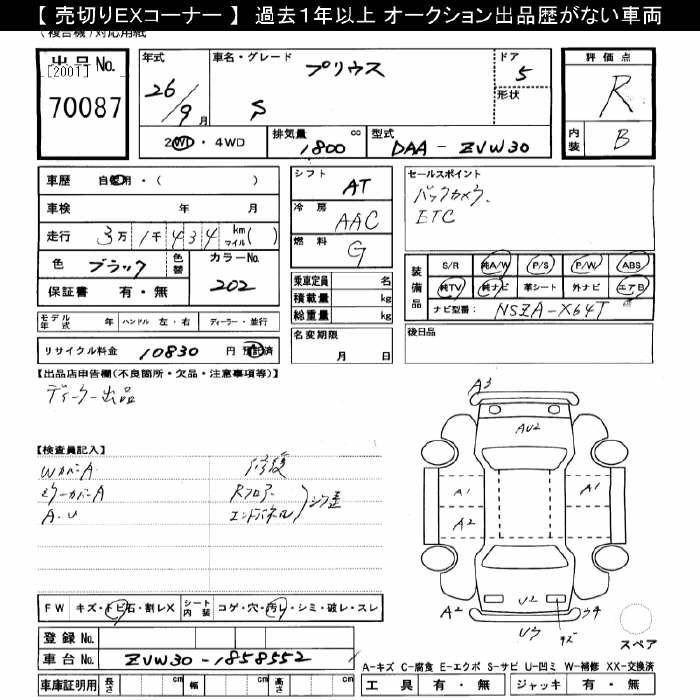 【 売切りEXコーナー 】 過去1年以上 オークション出品歴がない車両
(複合機)対応用紙
出品No.
[2001]
70087
年式
26/9月
車名・グレード
プリウス
S
ドア
5
形状
2WD・4WD
排気量
1800 cc
型式
DAA-ZVW30
評価点
R
内装
B
車歴 自家用・( )
車検 年 月
走行 3万1千434 km マイル( )
色 ブラック
色替
カラーNo.
202
保証書 有・無
シフト
AT
冷房
AAC
燃料
G
乗車定員 名
積載量 kg
総重量 kg
セールスポイント
バックカメラ、
ETC
装備品
S/R 純A/W P/S P/W ABS
純TV 純ナビ 革シート 外ナビ エアB
ナビ型番: NSZA-X64T
モデル年式 年 ハンドル 左・右 ディーラー・並行
名変期限
月 日
後日品
リサイクル料金 10830 円 預託済
【出品店申告欄(不良箇所・欠品・注意事項等)】
ディーラー出品
【検査員記入】
WカバーA
ミラーカバーA
A.U
修復
Rフロアー
エンドパネル
A3
AU2
A1
A1
A2
A2
U2
U3
キズ
スペア
FW キズ・トビ石・割レX
シート内装 コゲ・穴・汚レ・シミ・破レ・スレ
登録No.
車台No. ZVW30-1858552
A-キズ C-腐食 E-エクボ S-サビ U-凹ミ W-補修 XX-交換済
車庫証明用 長さ cm 幅 cm 高さ cm
工具 有・無 ジャッキ 有・無